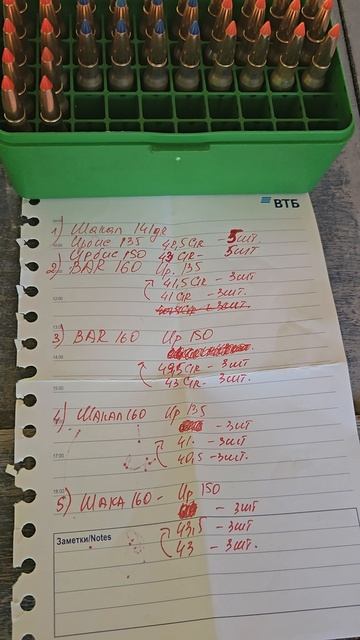 ВТБ
1) Шакал 141gr
Ирбис 135 42,5GR - 5шт.
Ирбис 150 43GR - 5шт.
2) BAR 160 Ир. 135
41,5GR - 3шт
41GR - 3шт.
3) BAR 160 Ир 150
GR - 3шт
43GR - 3шт.
4) Шакал 160 Ир 135
- 3шт
41. - 3шт
40,5 - 3шт.
5) Шака 160 - Ир 150
- 3шт
43,5 - 3шт
43 - 3шт.
Заметки/Notes